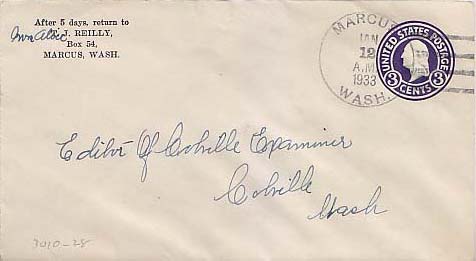 After 5 days, return to
T. J. REILLY,
Box 54,
MARCUS, WASH.
MARCUS
JAN
12
A.M.
1933
WASH.
UNITED STATES POSTAGE
3 CENTS 3
Editor Of Colville Examiner
Colville
Wash
3010-28